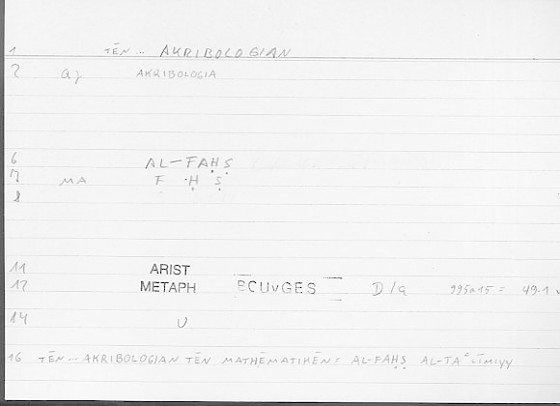 1 TĒN ... AKRIBOLOGIAN
2 aj AKRIBOLOGIA
6 AL-FAḤṢ
7 MA F Ḥ Ṣ
8
11 ARIST
12 METAPH ECUvGES D/a 995a15 = 49.1
14 U
16 TĒN ... AKRIBOLOGIAN TĒN MATHĒMATIKĒN: AL-FAḤṢ AL-TAʿLĪMIYY